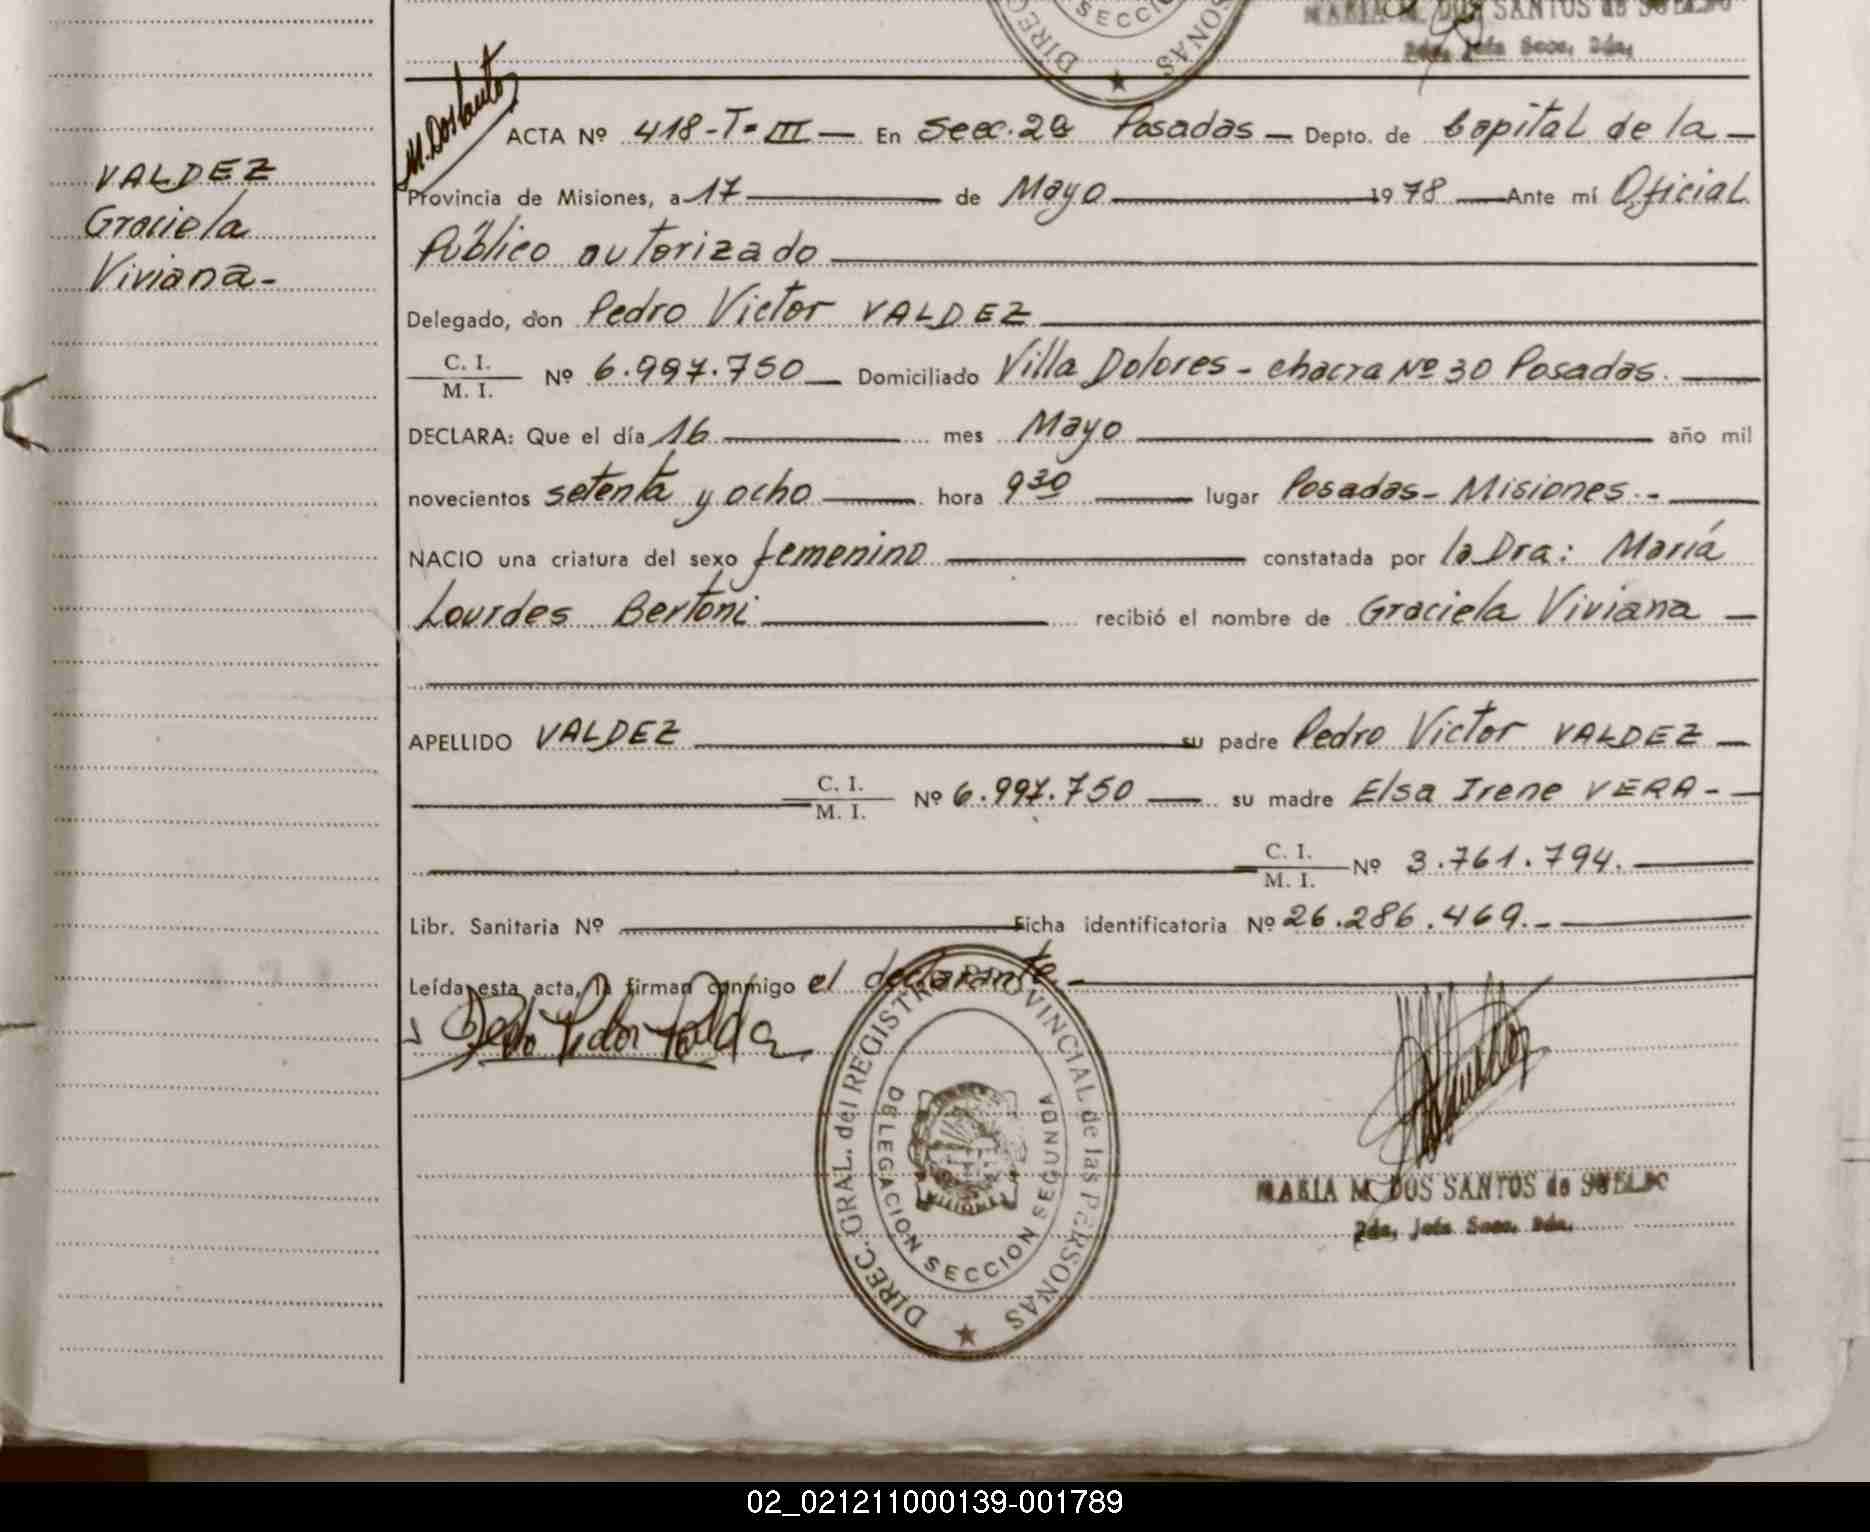 DIREC
SECCIO
SONAS
MARIA M. DOS SANTOS de SUELDO
2da. Jefa Secc. 2da.
M. Dos Santos
VALDEZ
Graciela
Viviana-
ACTA Nº 418-T=III— En Secc. 2ª Posadas— Depto. de Capital de la—
Provincia de Misiones, a 17 de Mayo 1978 Ante mí Oficial
Público autorizado
Delegado, don Pedro Victor VALDEZ
C. I.
M. I. Nº 6.997.750 Domiciliado Villa Dolores - chacra Nº 30 Posadas.
DECLARA: Que el día 16 mes Mayo año mil
novecientos setenta y ocho hora 9 30 lugar Posadas- Misiones.-
NACIO una criatura del sexo femenino constatada por la Dra: María
Lourdes Bertoni recibió el nombre de Graciela Viviana
APELLIDO VALDEZ su padre Pedro Victor VALDEZ
C. I.
M. I. Nº 6.997.750 su madre Elsa Irene VERA-
C. I.
M. I. Nº 3.761.794.
Libr. Sanitaria Nº Ficha identificatoria Nº 26.286.469.-
Leída esta acta, la firman conmigo el declarante.
Pedro Victor Valdez
DIREC. GRAL. del REGISTRO PROVINCIAL de las PERSONAS
DELEGACION SECCION SEGUNDA
MARIA M. DOS SANTOS de SUELDO
2da. Jefa Secc. 2da.
02_021211000139-001789